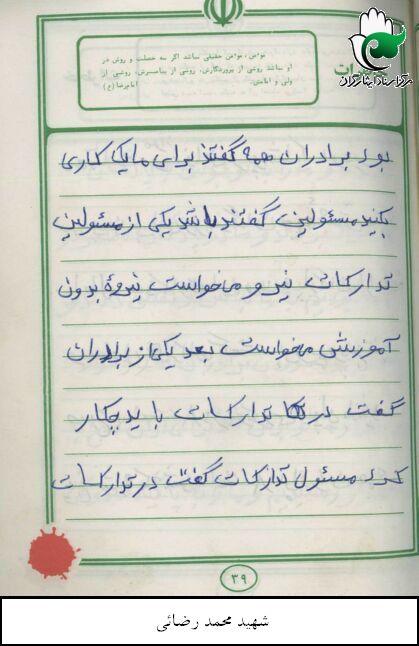 مؤمن، مؤمن حقیقی نباشد اگر سه خصلت و روش در
او نباشد روشی از پروردگارش، روشی از پیامبرش، روشی از
ولی و امامش. امام رضا (ع)
خاطرات
مرکز اسناد ایثارگران
بود برادران همه گفتند برای ما یک کاری
بکنید مسئولین گفتند باشد یکی از مسئولین
تدارکات نیرو میخواست نیروه بدون
آموزش میخواست بعد یکی از برادران
گفت در تدارکات باید چکار
کرد مسئول تدارکات گفت در تدارکات
۳۹
شهید محمد رضائی